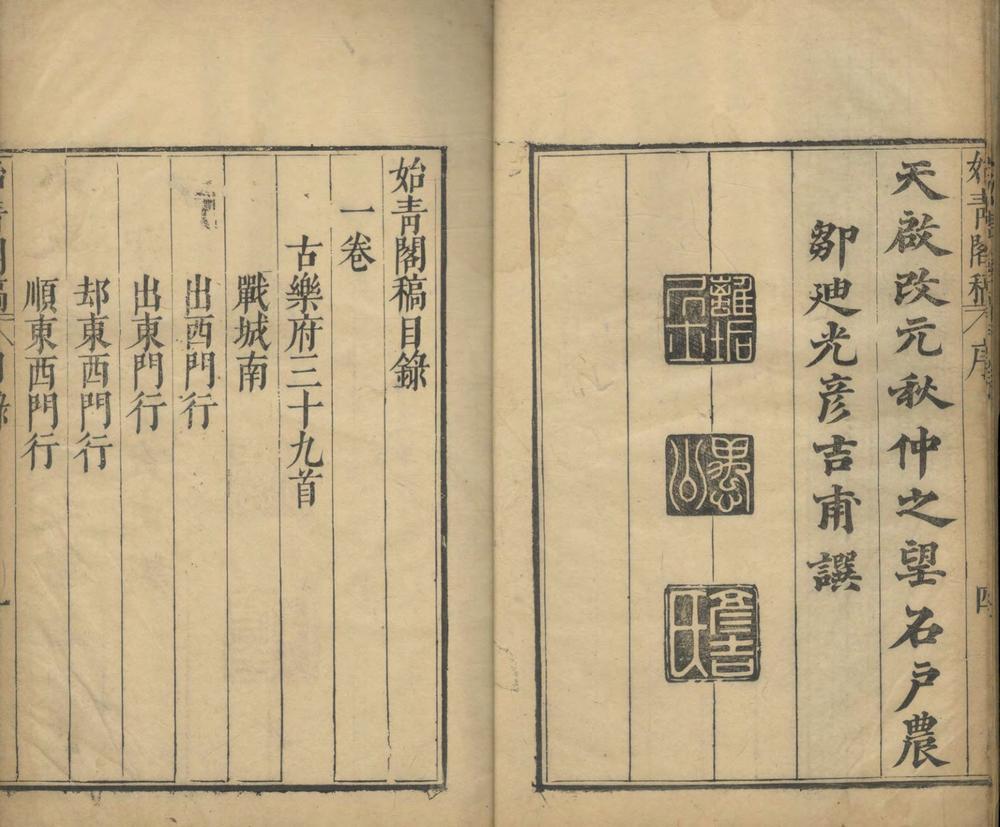 始青閣稿 序 四
天啟改元秋仲之望石戶農
鄒廸光彥吉甫譔
離垢居士
愚公
彥吉氏
始青閣稿目錄
一卷
古樂府三十九首
戰城南
出西門行
出東門行
却東西門行
順東西門行
始青閣稿 目錄 一